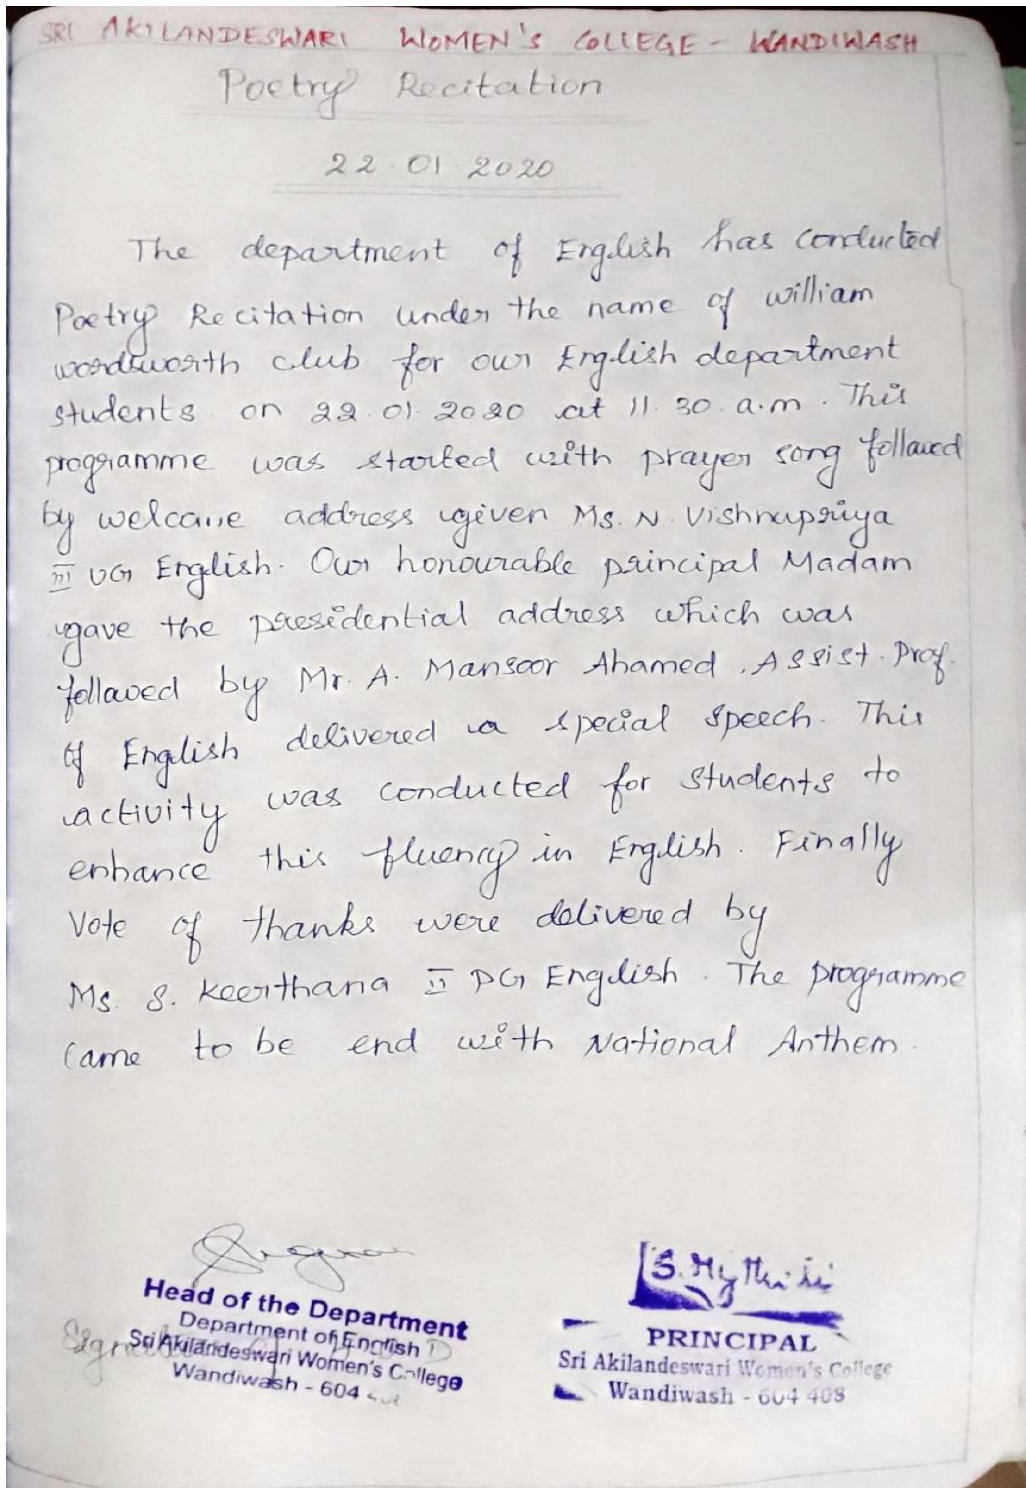 SRI AKILANDESWARI WOMEN'S COLLEGE - WANDIWASH
Poetry Recitation
22.01.2020
The department of English has conducted
Poetry Recitation under the name of william
wordsworth club for our English department
students on 22.01.2020 at 11.30 a.m. This
programme was started with prayer song followed
by welcome address given Ms. N. Vishnupriya
III UG English. Our honourable principal Madam
gave the presidential address which was
followed by Mr. A. Mansoor Ahamed, Assist. Prof.
of English delivered a special speech. This
activity was conducted for students to
enhance this fluency in English. Finally
Vote of thanks were delivered by
Ms. S. Keerthana II PG English. The programme
came to be end with National Anthem.
Head of the Department
Department of English
Sri Akilandeswari Women's College
Wandiwash - 604
S. Mythili
PRINCIPAL
Sri Akilandeswari Women's College
Wandiwash - 604 408